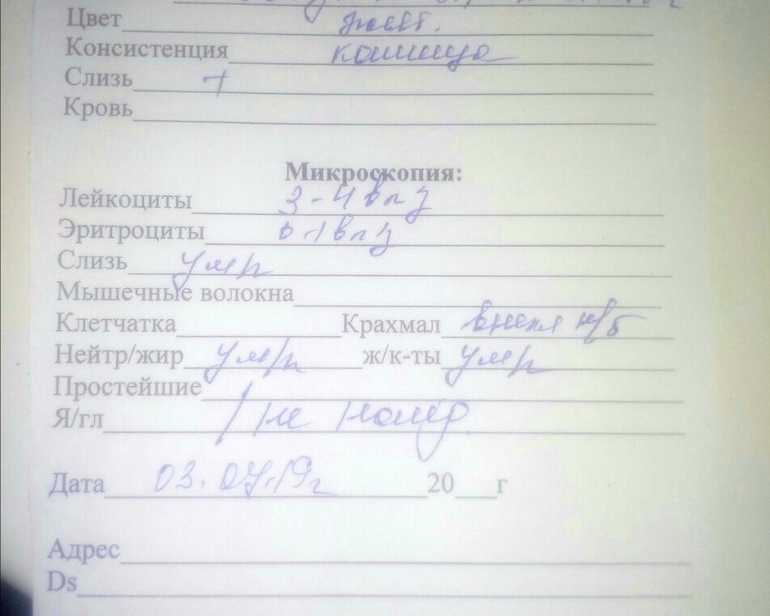 Цвет желт.
Консистенция кашица
Слизь +
Кровь
Микроскопия:
Лейкоциты 3-4 в п/з
Эритроциты 0-1 в п/з
Слизь умр
Мышечные волокна
Клетчатка Крахмал внекл н/б
Нейтр/жир умр ж/к-ты умр
Простейшие
Я/гл не
Дата 03.07.19г 20 г
Адрес
Ds